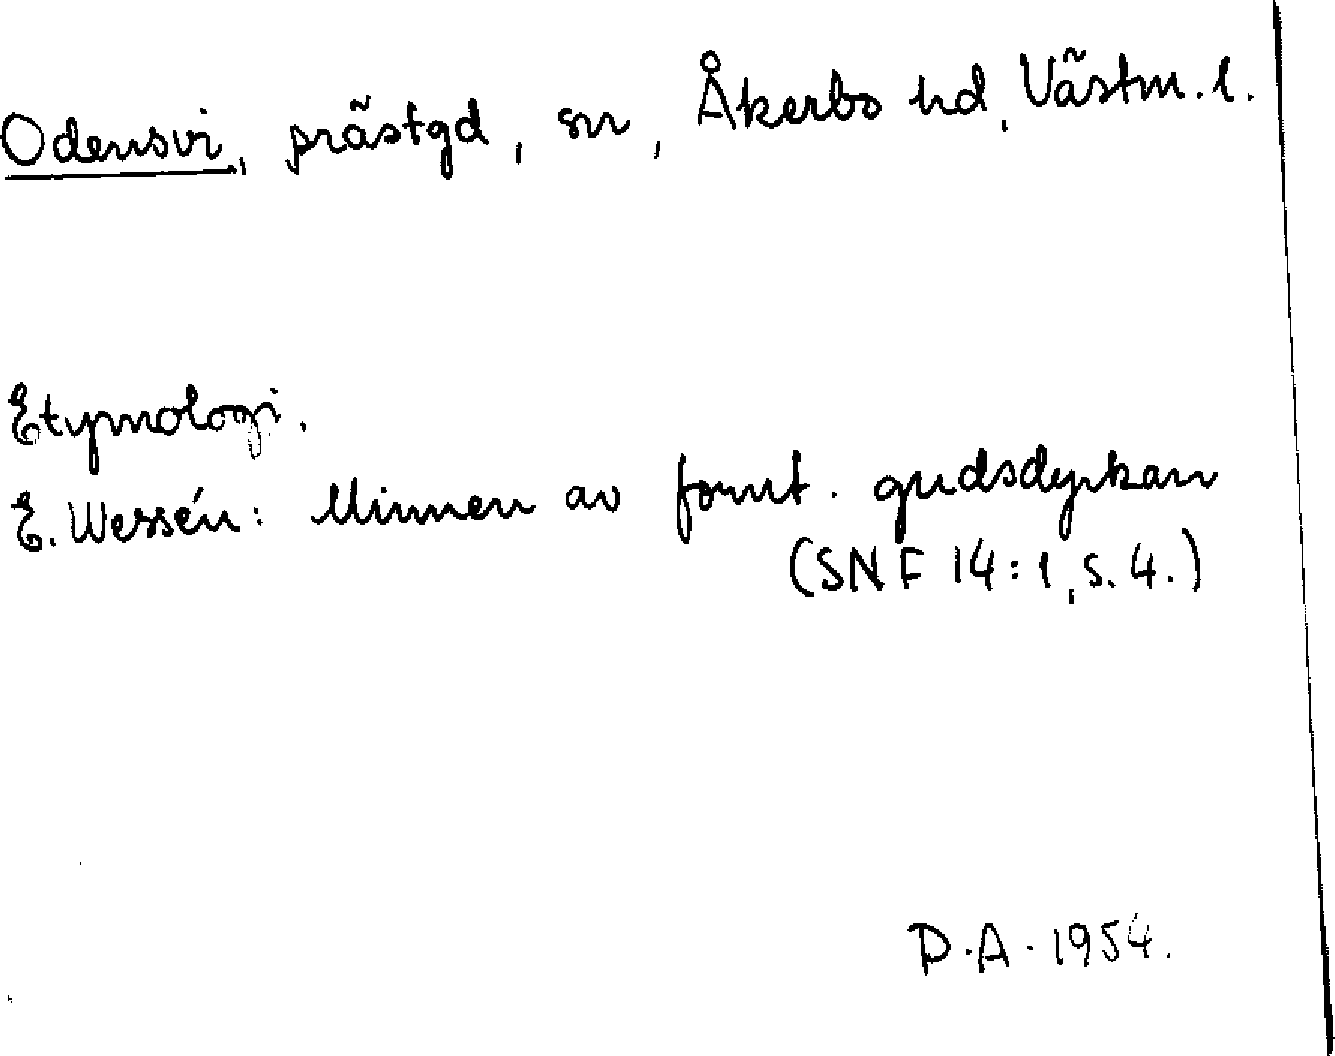 Odensvi, prästgd, sn, Åkerbo hd, Västm. l.
Etymologi.
E. Wessén: Minnen av fornt. gudsdyrkan
(SNF 14:1, s. 4.)
D.A. 1954.